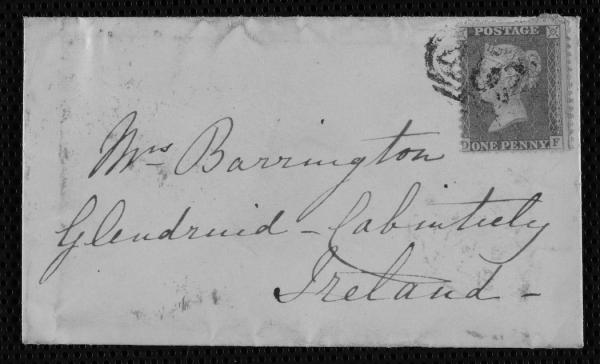 POSTAGE
ONE PENNY
D F
Mrs Barrington
Glendruid - Cabinteely
Ireland -